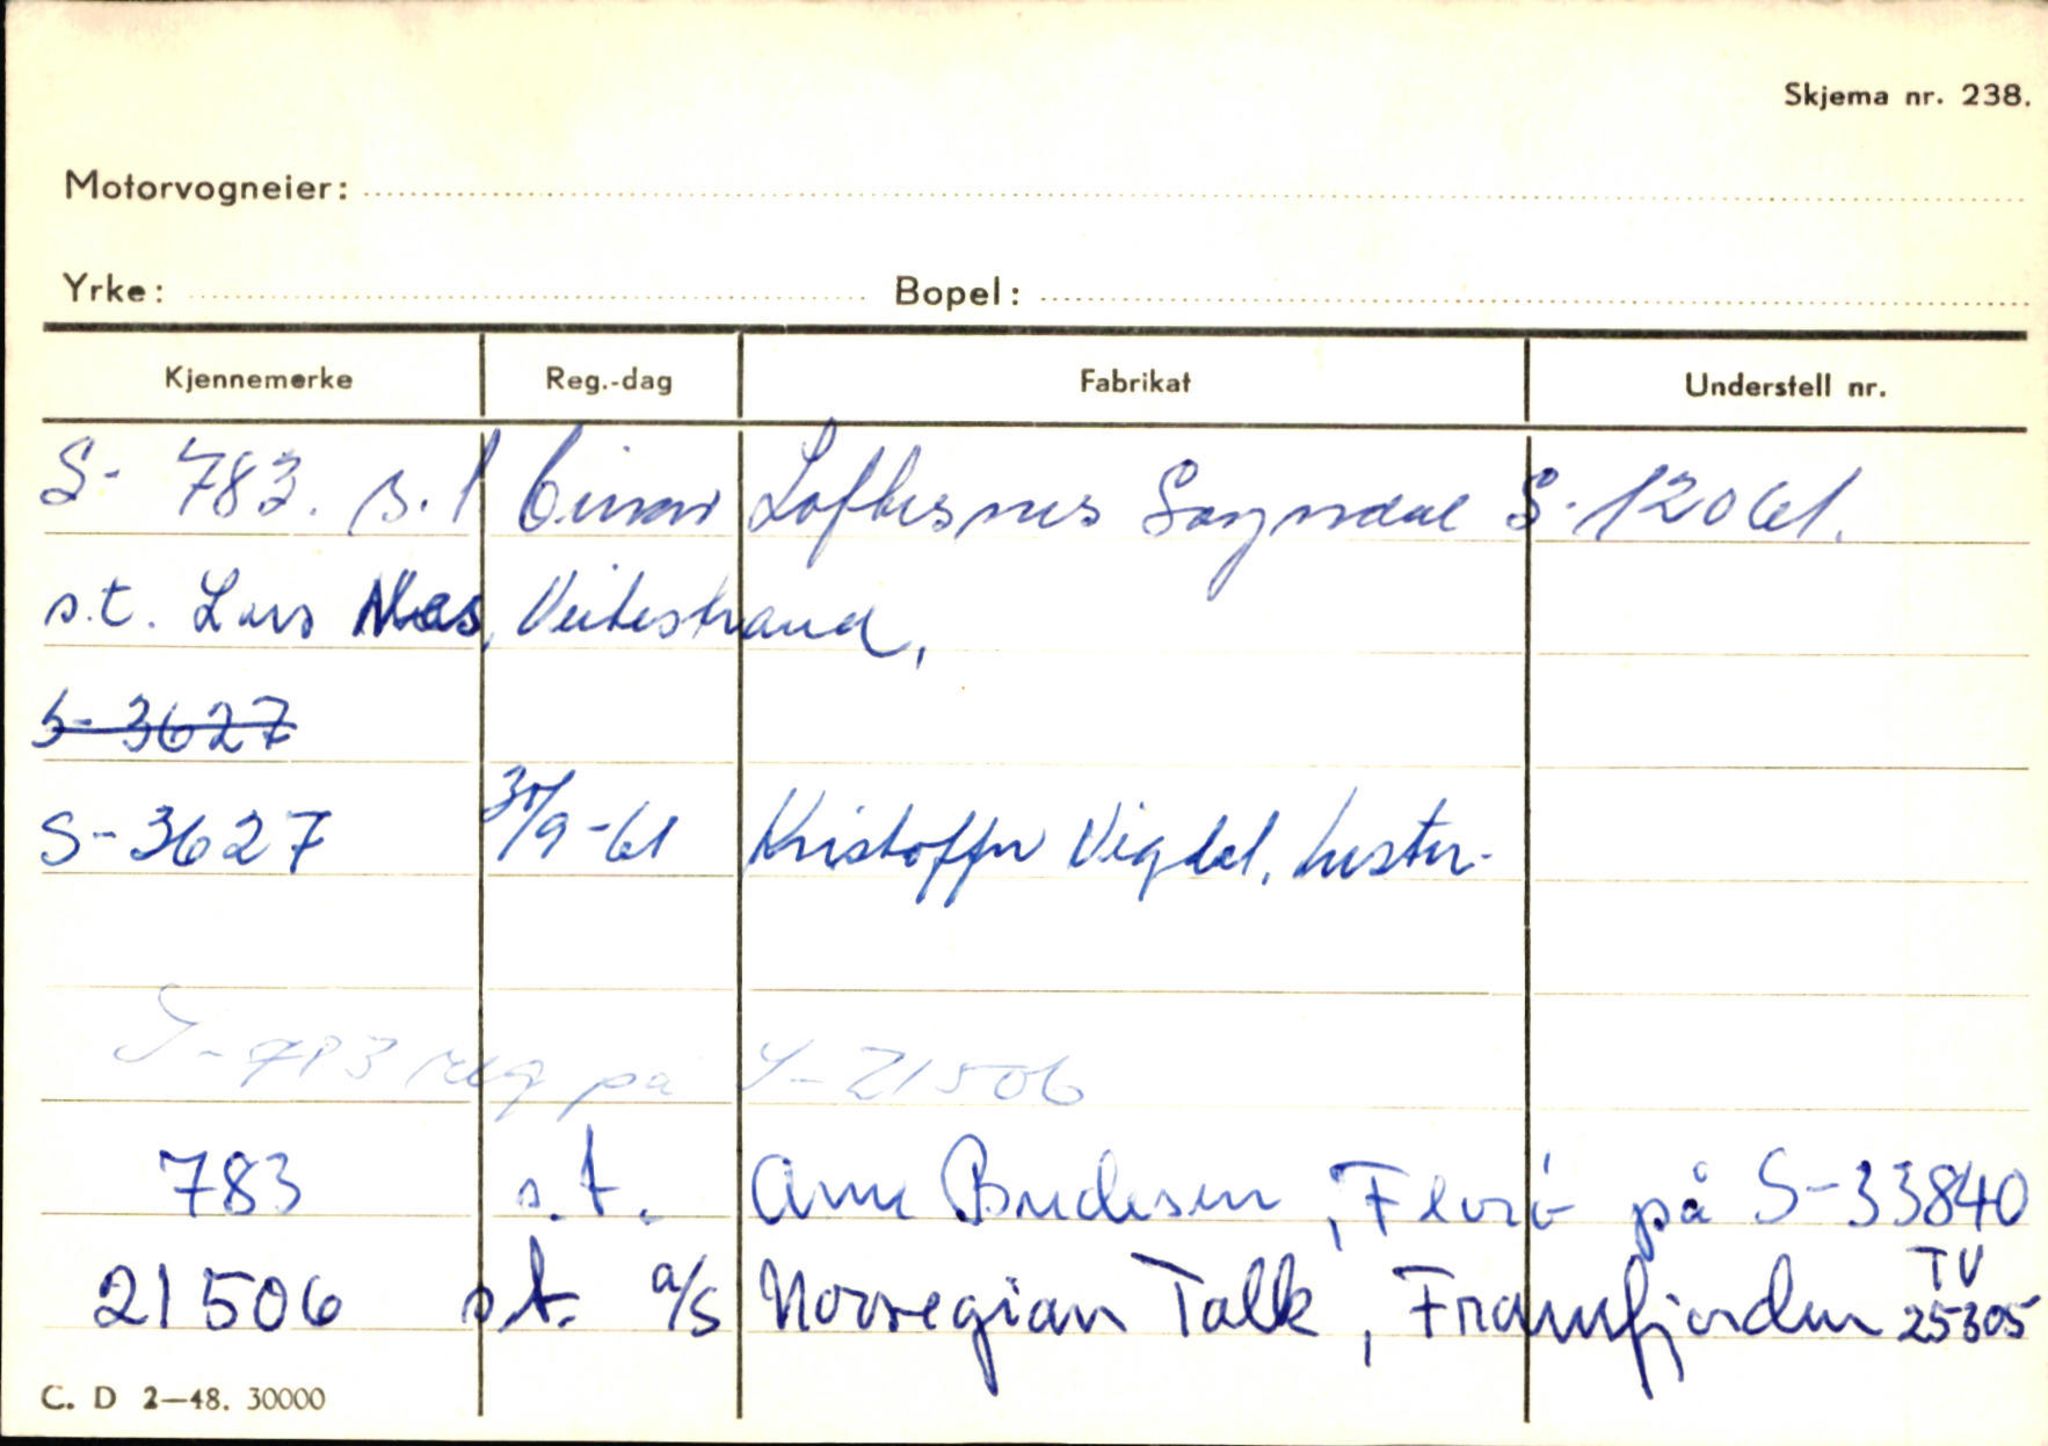 Skjema nr. 238.
Motorvogneier:
Yrke: Bopel:
Kjennemerke Reg.-dag Fabrikat Understell nr.
S- 783. s.t Einar Loftesnes Sogndal S-12061.
s.t. Lars Næs, Veitestrand,
S-3627
S-3627 30/9-61 Kristoffer Vigdal, Luster.
S-783 reg på S-21506
783 s.t. Arne Brudesen, Florö på S-33840
21506 s.t. a/s Norwegian Talk, Framfjorden TV 25305
C. D 2-48. 30000